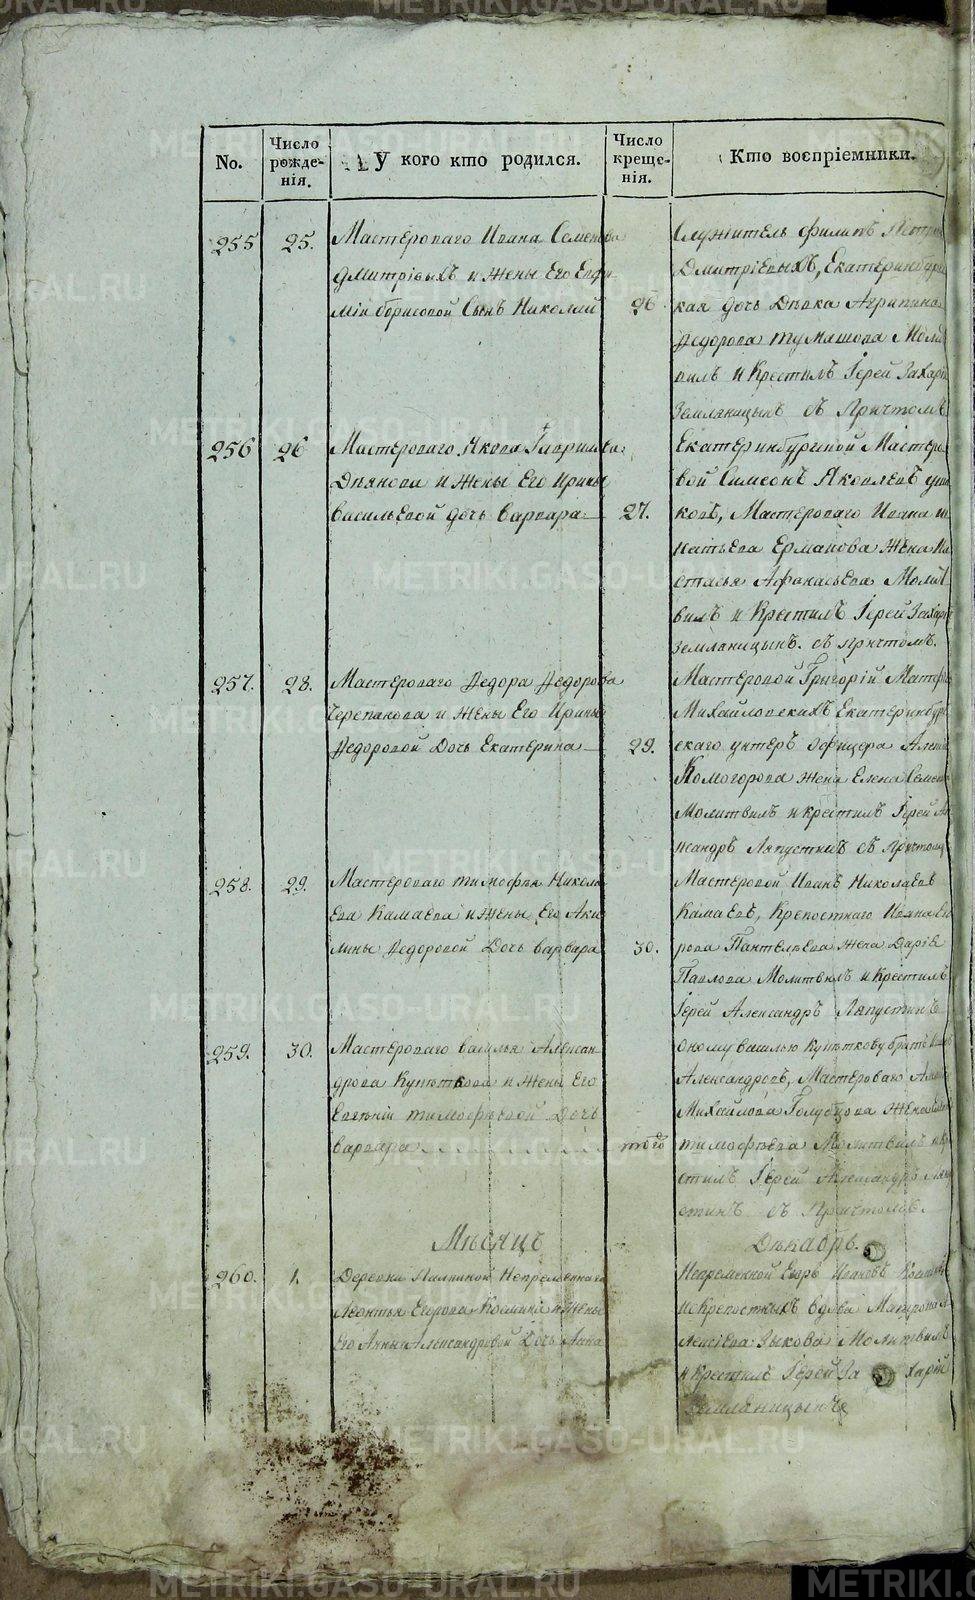 No.
Число рожде-нія.
У кого кто родился.
Число креще-нія.
Кто воспріемники.
255
25.
Мастероваго Ивана Семенова
Дмитріевыхъ и Жены Его Евфи-
міи борисовой Сынъ Николай
26
Служитель филипъ Петр
Дмитріевыхъ, Екатеринбург
кая дочь Дѣвка Агрипина
Федорова тумашова Молит
вилъ и Крестилъ Іерей Захарій
Земляницынъ съ Причтомъ
256
26
Мастероваго Якова Гаврилова
и Жены Его Ирины
васильевой дочь варвара
27.
Екатеринбургской Мастеро
вой Симеонъ Яковлевъ
ковъ, Мастероваго Ивана
натьева Ермакова Жена На
стасья Афанасьева Молит
вилъ и Крестилъ Іерей Захарій
Земляницынъ. съ причтомъ.
257.
28.
Мастероваго Федора Федорова
Черепанова и Жены Его Ирины
Федоровой Дочь Екатерина
29.
Мастеровой Григорій Матф
Михайловскихъ Екатеринбург
скаго унтеръ Офицера
Комогорова жена Елена Семен
Молитвилъ и крестилъ Іерей Ал
ксандръ Ляпустинъ съ Причтом
258.
29.
Мастероваго тимофѣя Никола
ева Камаева и Жены Его Аки
лины Федоровой Дочь варвара
30.
Мастеровой Иванъ Николаевъ
Камаевъ, Крепостнаго Ивана
рова Пантелѣева жена Дарія
Павлова Молитвилъ и Крестилъ
Іерей Александръ Ляпустинъ
259.
30.
Мастероваго василья Алексан-
дрова и Жены Его
Евгеніи тимофѣевой Дочь
варвара
того
Оному василью брат
Александровъ, Мастероваго
Михайлова Голубцова Жена
тимофѣева Молитвилъ и кре
стилъ Іерей Александръ Ляпу
стинъ съ Причтомъ.
Мѣсяцъ
Декабрь.
260.
1.
Деревни Непременнаго
Леонтья Егорова и Жены
Его Анны Александровой Дочь Анна
Непременной Егоръ Ивановъ
и Крепостныхъ вдова Матрона А
лексіева Зыкова Молитвилъ
и Крестилъ Іерей Захарій
Земляницынъ
METRIKI.GASO-URAL.RU